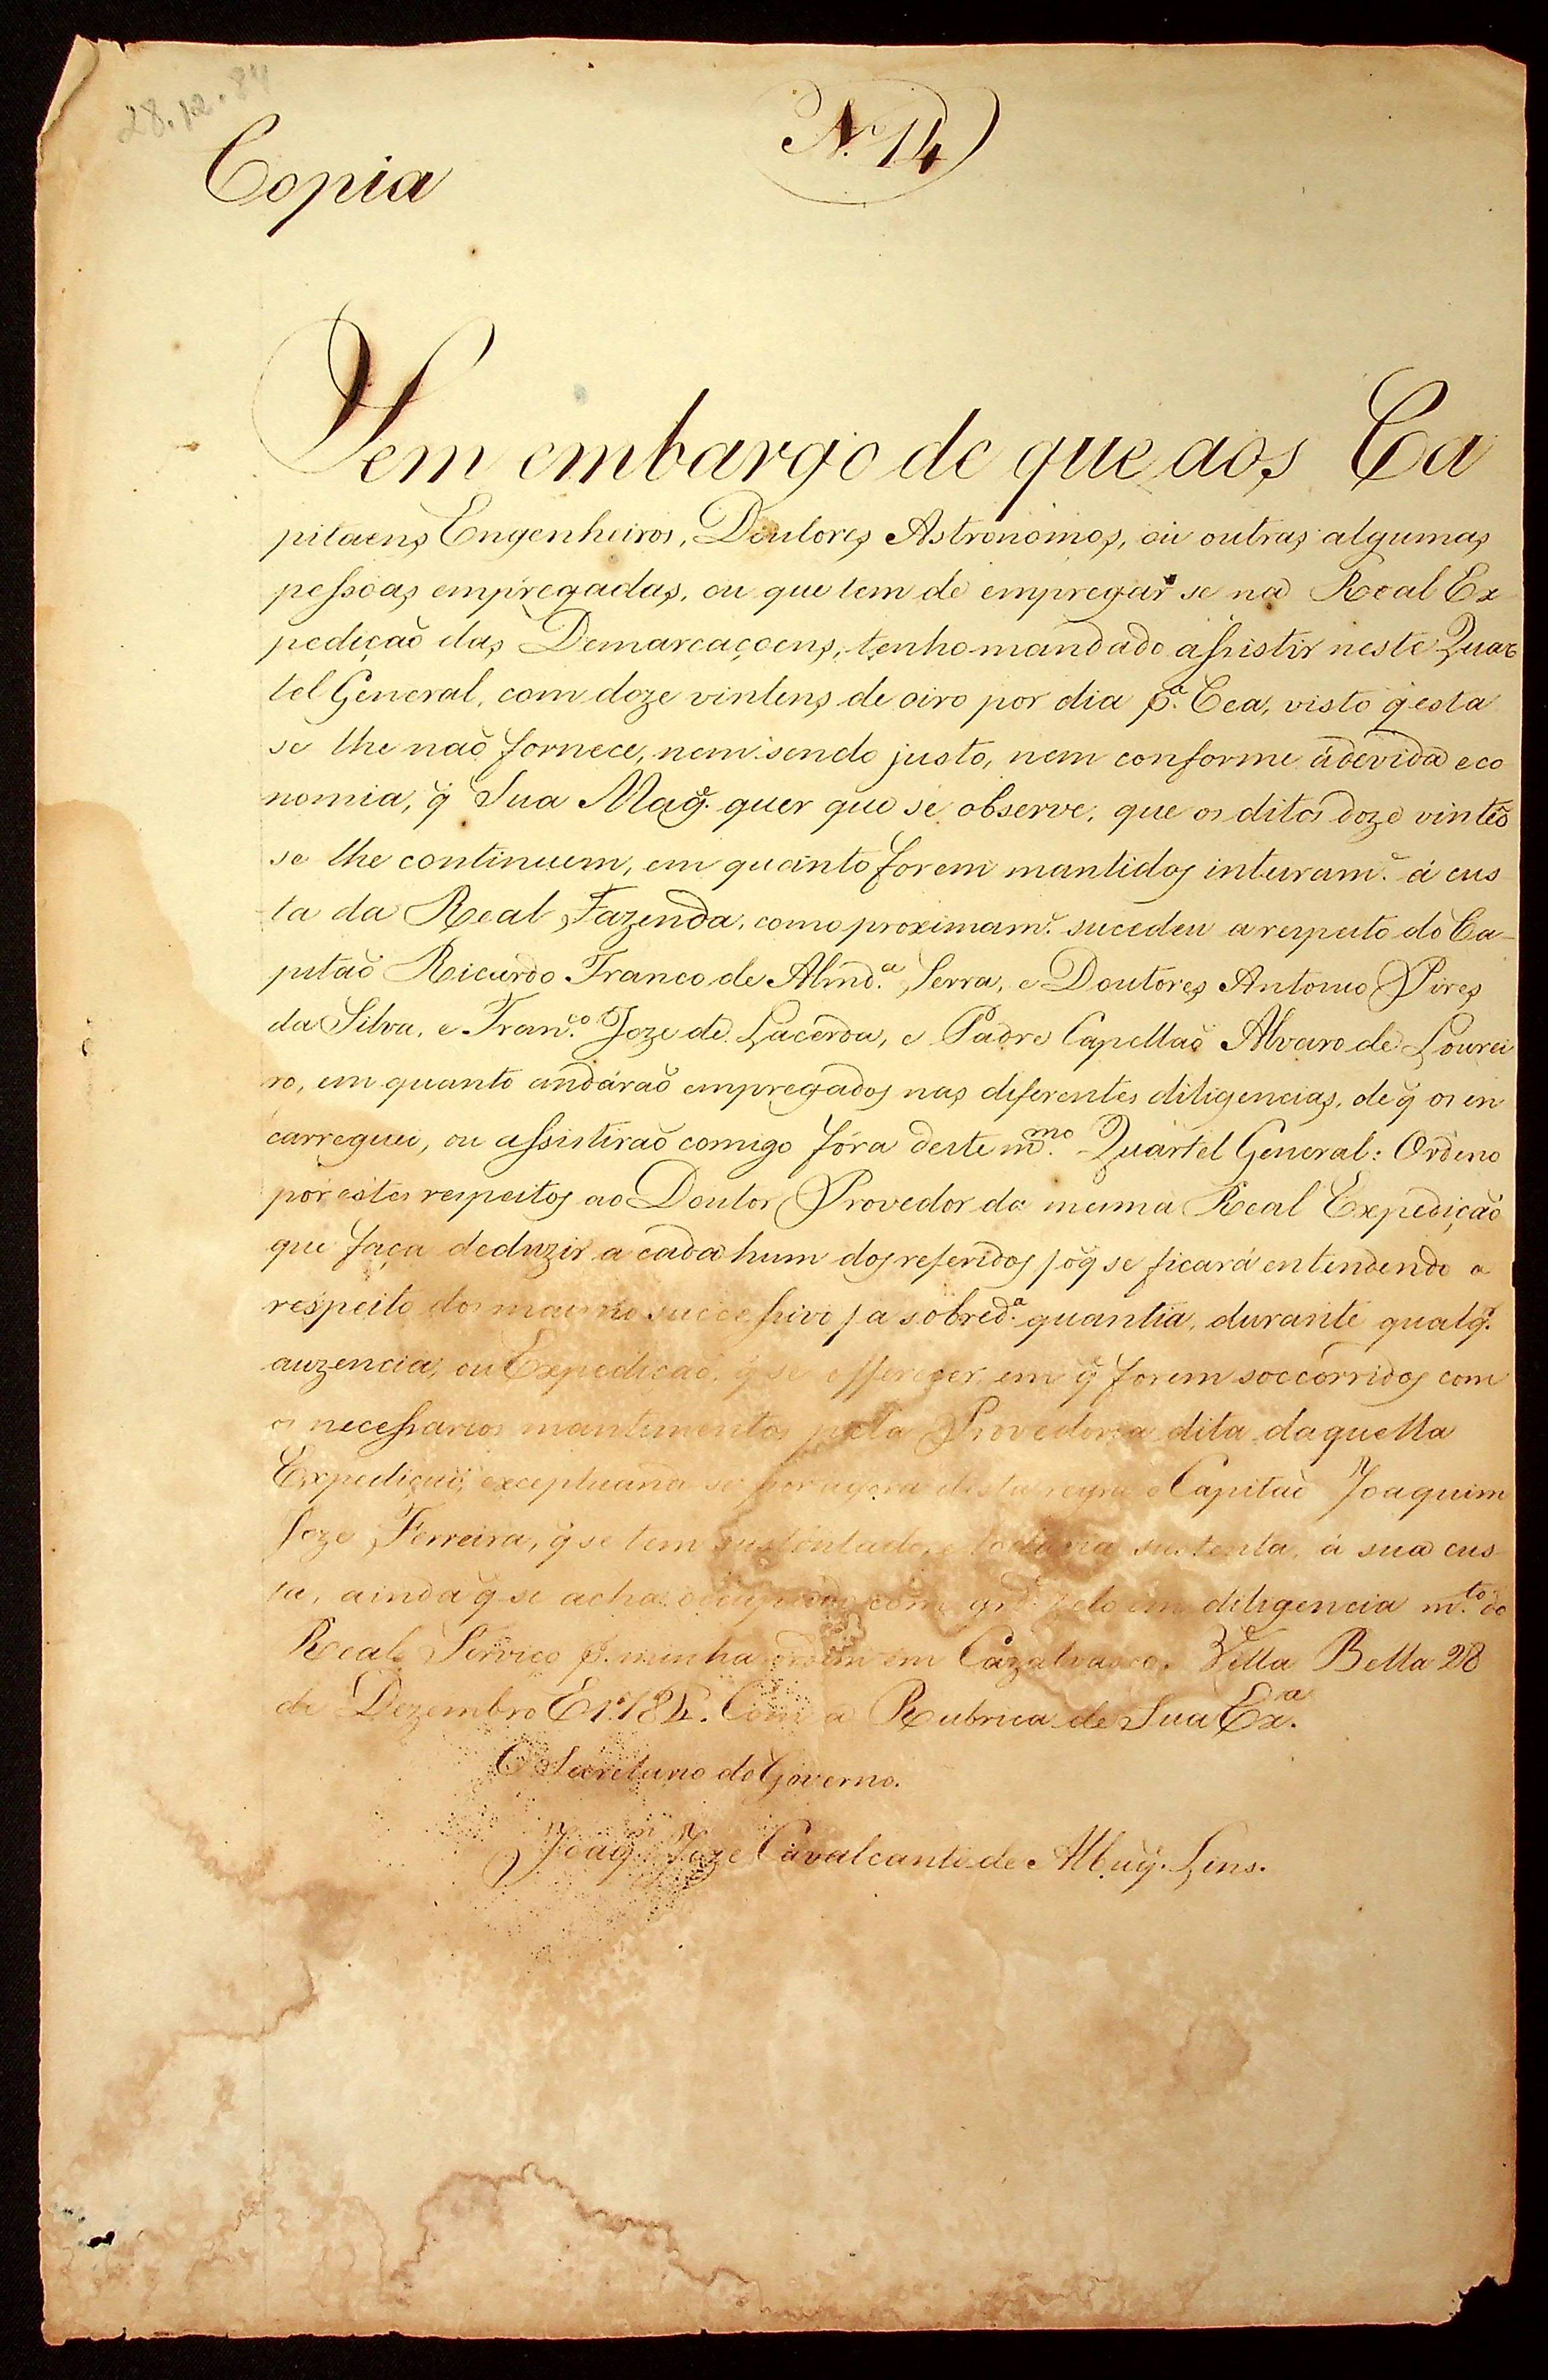 28.12.84
N.º 14
Copia
Sem embargo de que aos Ca
pitaens Engenheiros, Doutores Astronomos, ou outras algumas
pessoas empregadas, ou que tem de empregar se na Real Ex
pedição das Demarcaçoens, tenho mandado assistir neste Quar
tel General, com doze vintens de oiro por dia p.ª Cea, visto q̃ esta
se lhe naõ fornece, nem sendo justo, nem conforme á devida eco
nomia, q̃ Sua Mag.e quer que se observe, que os ditos doze vinteñs
se lhe continuem, em quanto forem mantidos inteiram.e á cus
ta da Real Fazenda, como proximam.e sucedeu a respeito do Ca-
pitaõ Ricardo Franco de Almd.ª Serra, e Doutores Antonio Pires
da Silva, e Fran.co Joze de Lacerda, e Padre Capellaõ Alvaro de Lourei
ro, em quanto andáraõ empregados nas diferentes diligencias, de q̃ os en
carreguei, ou assistiraõ comigo fóra deste m.mo Quartel General: Ordeno
por estes respeitos ao Doutor Provedor da mesma Real Expedição
que faça deduzir a cada hum dos referidos / o q̃ se ficará entendendo a
respeito dos mais no successivo / a sobred.ª quantia, durante qualq.r
auzencia, ou Expediçaõ, q̃ se offerecer, em q̃ forem soccorridos com
os necessarios mantimentos pela Provedoria dita daquella
Expediçaõ, exceptuando se por agora desta regra o Capitaõ Joaquim
Joze Ferreira, q̃ se tem sustentado, e todavia sustenta, á sua cus
ta, ainda q̃ se acha occupado com grd.e zelo em diligencia m.to do
Real Serviço p.r minha ordem em Cazalvasco. Villa Bella 28
de Dezembro E 1784. Com a Rubrica de Sua Ex.ª
O Secretario do Governo.
Joaq.m Joze Cavalcanti de Albuq.e Lins.